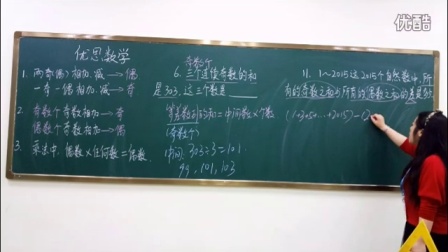 优酷
优思数学
1. 两奇(偶)相加.减→偶
一奇一偶相加.减→奇
2 奇数个奇数相加→奇
偶数个奇数相加→偶
3. 乘法中. 偶数×任何数=偶数
奇数个
6. 三个连续奇数的和
是303. 这三个数是
等差数列的和=中间数×个数
(奇数个)
中间: 303÷3=101
99, 101, 103
11. 1~2015这2015个自然数中, 所
有的奇数之和与所有的偶数之和的差是多少
(1+3+5+...+2015)-(2